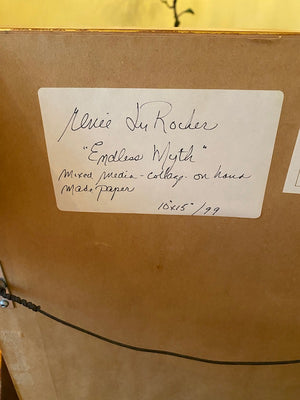 Renée Du Rocher
"Endless Myth"
mixed media - collage - on hand
made paper
10"x15" / 99